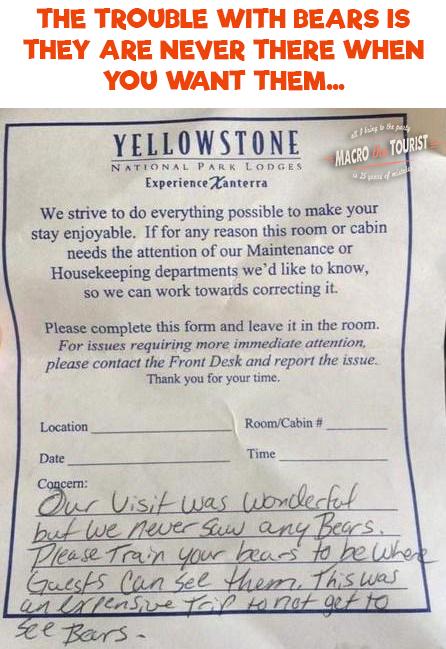 THE TROUBLE WITH BEARS IS
THEY ARE NEVER THERE WHEN
YOU WANT THEM...
all I bring to the party
MACRO the TOURIST
is 25 years of mistakes
YELLOWSTONE
NATIONAL PARK LODGES
Experience Xanterra
We strive to do everything possible to make your
stay enjoyable. If for any reason this room or cabin
needs the attention of our Maintenance or
Housekeeping departments we'd like to know,
so we can work towards correcting it.
Please complete this form and leave it in the room.
For issues requiring more immediate attention,
please contact the Front Desk and report the issue.
Thank you for your time.
Location
Room/Cabin #
Date
Time
Concern:
Our Visit was wonderful
but we never saw any Bears.
Please Train your bears to be where
Guests can see them. This was
an expensive Trip to not get to
see Bears.